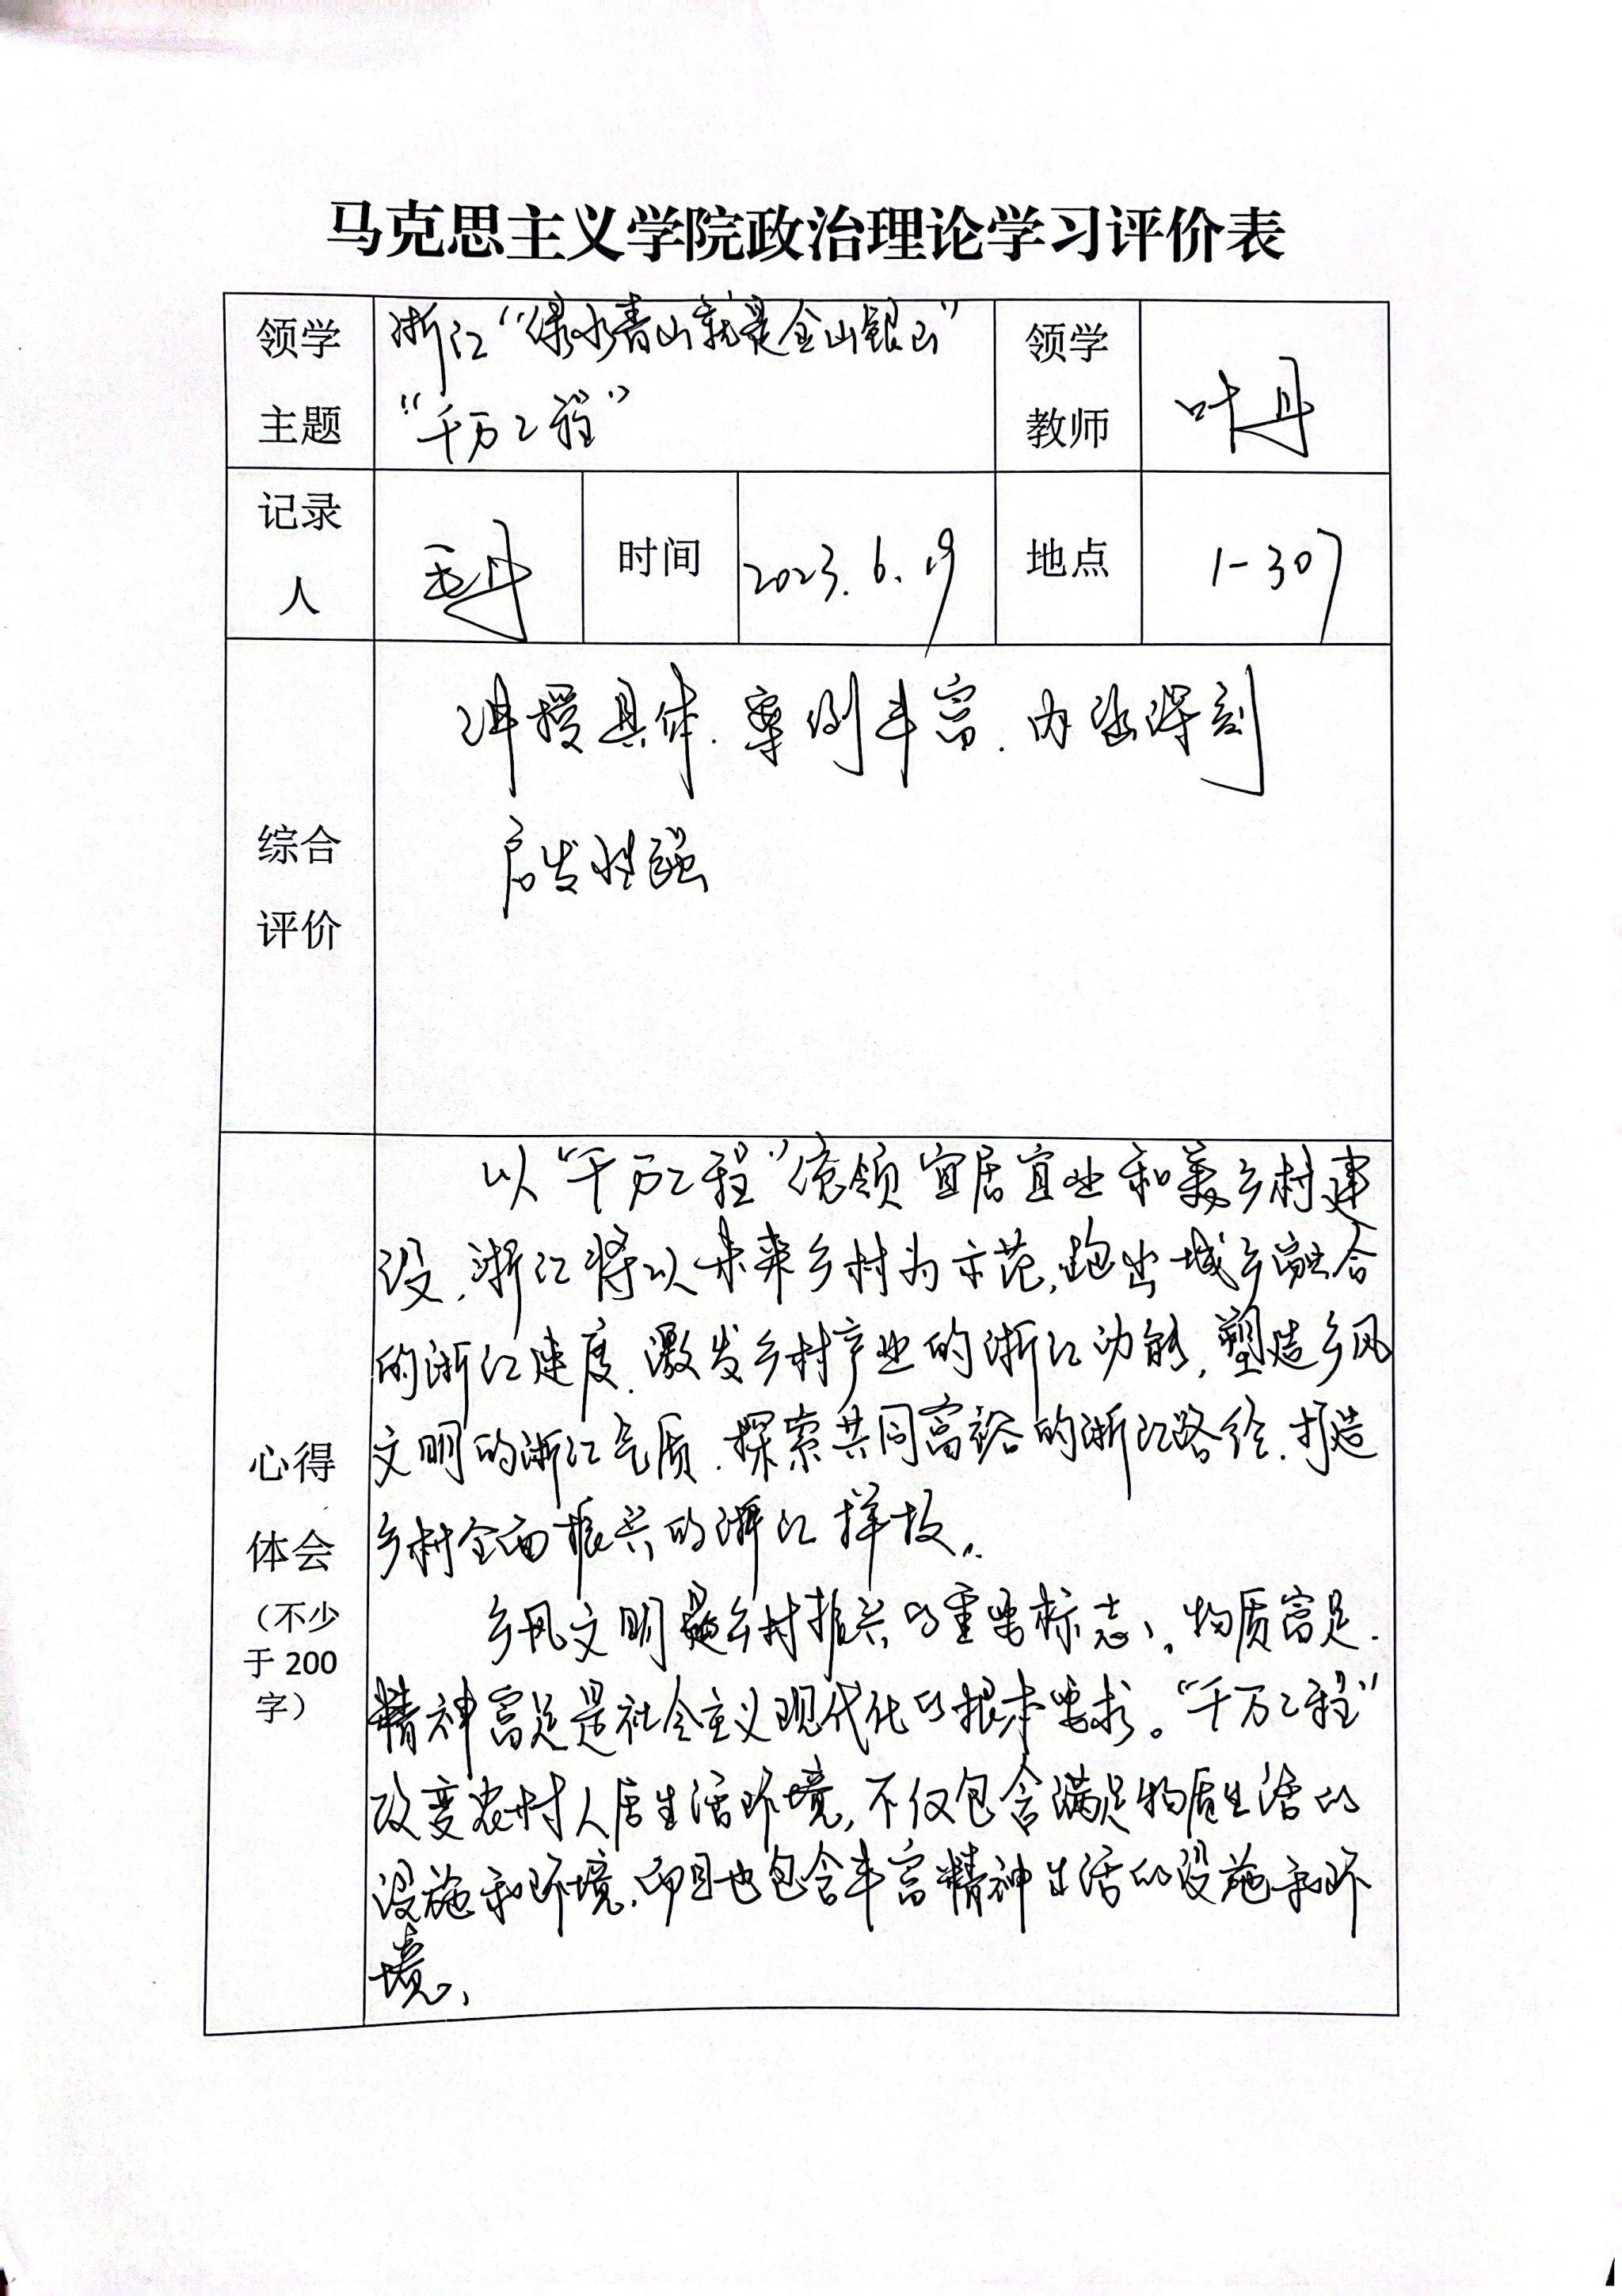 马克思主义学院政治理论学习评价表
领学
主题
浙江“绿水青山就是金山银山”
“千万工程”
领学
教师
叶丹
记录
人
时间
2023.6.19
地点
1-307
综合
评价
讲授具体.案例丰富.内涵深刻
启发性强
心得
体会
（不少
于 200
字）
以“千万工程”统领宜居宜业和美乡村建
设,浙江将以未来乡村为示范,跑出城乡融合
的浙江速度.激发乡村产业的浙江动能,塑造乡风
文明的浙江气质.探索共同富裕的浙江路径.打造
乡村全面振兴的浙江样板。
乡风文明是乡村振兴的重要标志。物质富足.
精神富足是社会主义现代化的根本要求。“千万工程”
改变农村人居生活环境,不仅包含满足物质生活的
设施和环境,而且也包含丰富精神生活的设施和环
境。